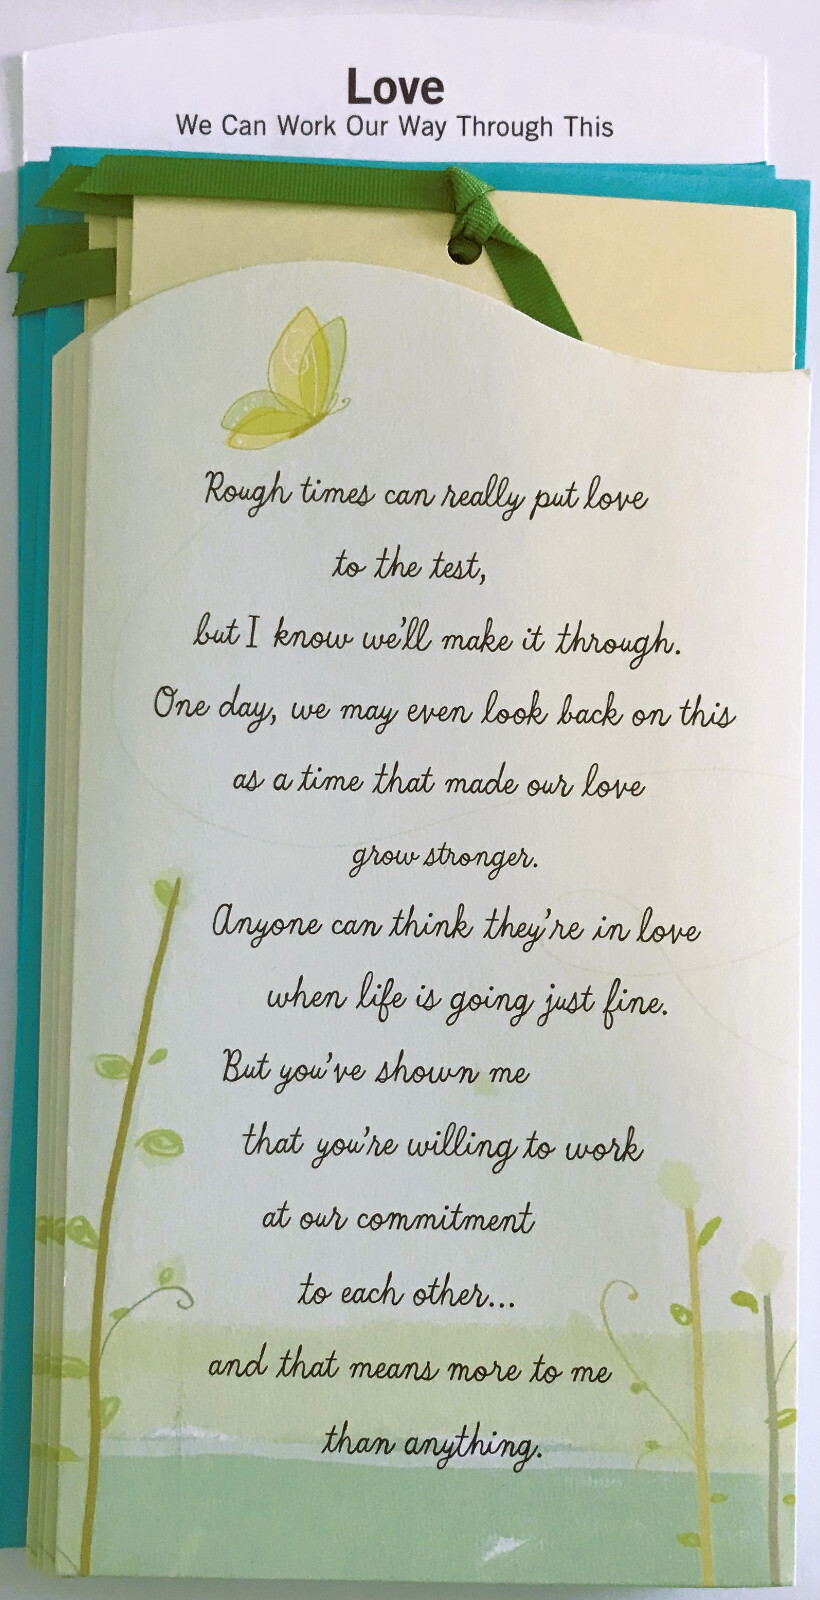 Love
We Can Work Our Way Through This
Rough times can really put love
to the test,
but I know we'll make it through.
One day, we may even look back on this
as a time that made our love
grow stronger.
Anyone can think they're in love
when life is going just fine.
But you've shown me
that you're willing to work
at our commitment
to each other...
and that means more to me
than anything.